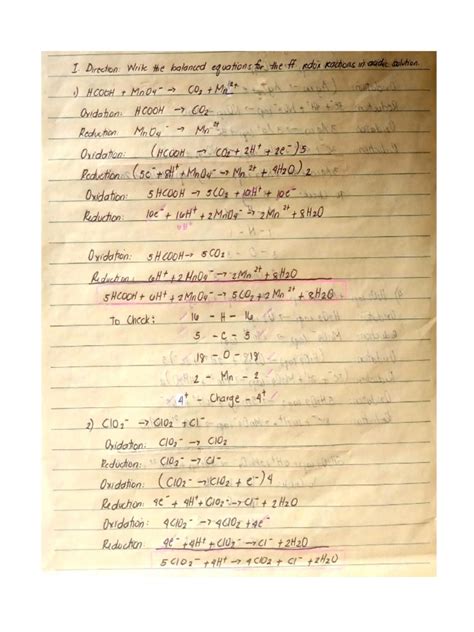 I. Direction: Write the balanced equations for the ff redox reactions in acidic solution
1) HCOOH + MnO4⁻ → CO2 + Mn²⁺
Oxidation: HCOOH → CO2
Reduction: MnO4⁻ → Mn²⁺
Oxidation: (HCOOH → CO2 + 2H⁺ + 2e⁻) 5
Reduction: (5e⁻ + 8H⁺ + MnO4⁻ → Mn²⁺ + 4H2O) 2
Oxidation: 5HCOOH → 5CO2 + 10H⁺ + 10e⁻
Reduction: 10e⁻ + 16H⁺ + 2MnO4⁻ → 2Mn²⁺ + 8H2O
6H⁺
Oxidation: 5HCOOH → 5CO2
Reduction: 6H⁺ + 2MnO4⁻ → 2Mn²⁺ + 8H2O
5HCOOH + 6H⁺ + 2MnO4⁻ → 5CO2 + 2Mn²⁺ + 8H2O
To Check: 16 - H - 16
5 - C - 5
18 - O - 18
2 - Mn - 2
4⁺ - Charge - 4⁺
2) ClO2⁻ → ClO2 + Cl⁻
Oxidation: ClO2⁻ → ClO2
Reduction: ClO2⁻ → Cl⁻
Oxidation: (ClO2⁻ → ClO2 + e⁻) 4
Reduction: 4e⁻ + 4H⁺ + ClO2⁻ → Cl⁻ + 2H2O
Oxidation: 4ClO2⁻ → 4ClO2 + 4e⁻
Reduction: 4e⁻ + 4H⁺ + ClO2⁻ → Cl⁻ + 2H2O
5ClO2⁻ + 4H⁺ → 4ClO2 + Cl⁻ + 2H2O